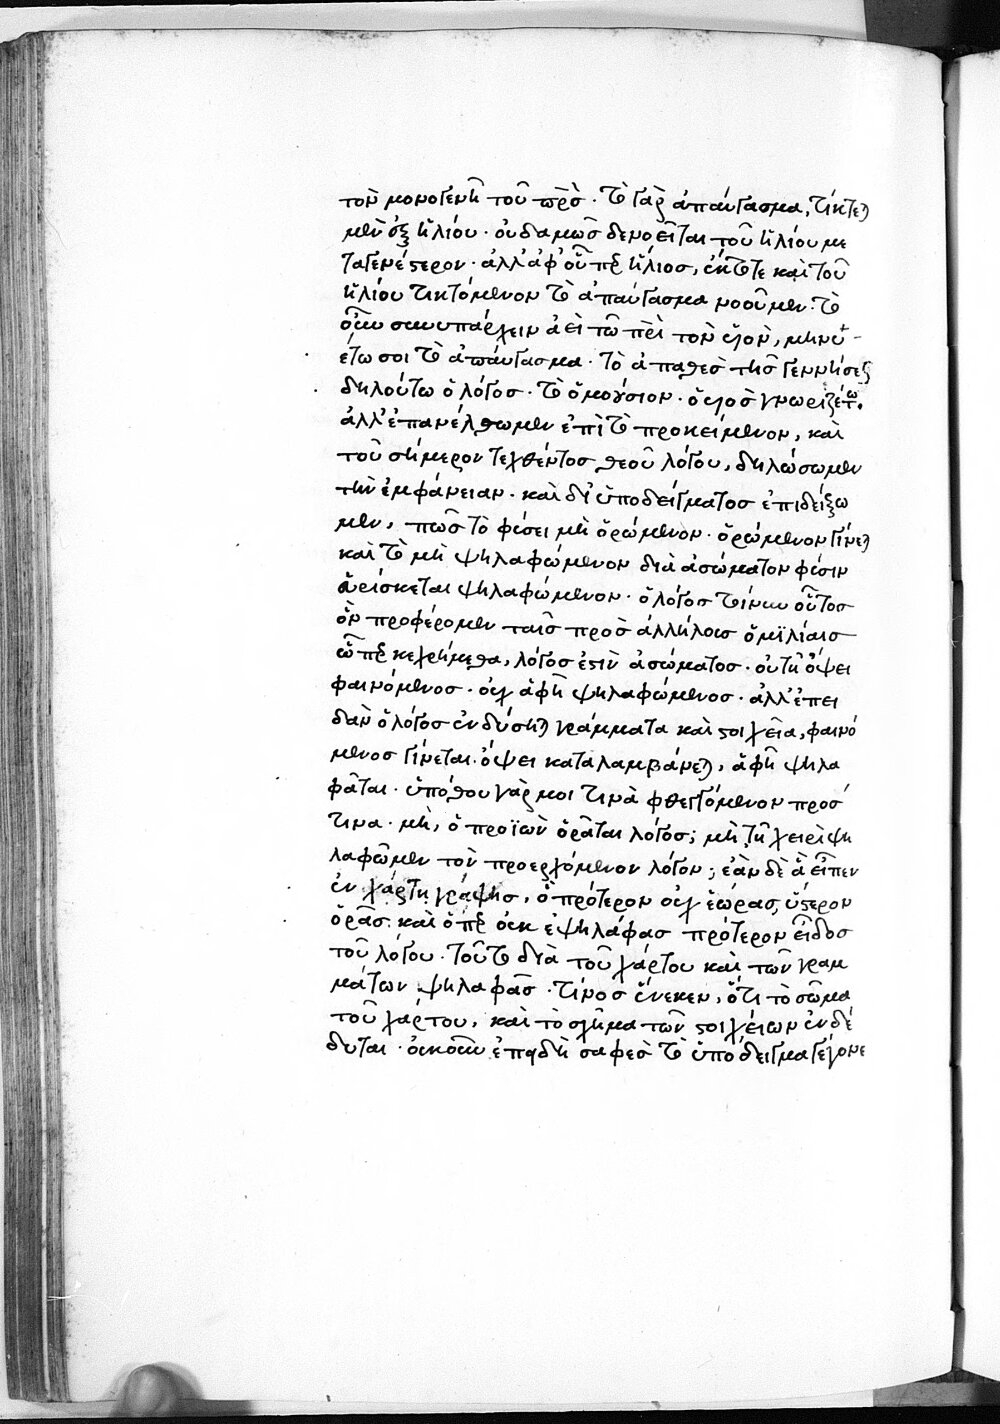 τὸν μονογενῆ τοῦ πρς· τὸ γὰρ ἀπαύγασμα, τίκτετ
μὲν ἐξ ἡλίου· οὐδαμῶς δὲ νοεῖται τοῦ ἡλίου με
ταγενέστερον· ἀλλ' ἀφ' οὗπερ ἥλιος, ἔκτοτε καὶ τοῦ
ἡλίου τικτόμενον τὸ ἀπαύγασμα νοοῦμεν· τὸ
οὖν συνυπάρχειν ἀεὶ τῶ πρὶ τὸν υἱὸν, μηνυ-
έτω σοι τὸ ἀπαύγασμα· τὸ ἀπαθὲς τῆς γεννήσεως
δηλούτω ὁ λόγος· τὸ ὁμοούσιον· ὁ υἱὸς γνωριζέτω.
ἀλλ' ἐπανέλθωμεν ἐπὶ τὸ προκείμενον, καὶ
τοῦ σήμερον τεχθέντος θεοῦ λόγου, δηλώσωμεν
τὴν ἐμφάνειαν· καὶ δι' ὑποδείγματος ἐπιδείξω
μεν, πῶς τὸ φύσει μὴ ὁρώμενον· ὁρώμενον γίνετ
καὶ τὸ μὴ ψηλαφώμενον διὰ ἀσώματον φύσιν
εὑρίσκεται ψηλαφώμενον· ὁ λόγος τοίνυν οὗτος
ὃν προφέρομεν ταῖς πρὸς ἀλλήλους ὁμιλίαις
ὧπερ κεχρήμεθα, λόγος ἐστὶν ἀσώματος· οὐ τῆ ὄψει
φαινόμενος· οὐχ ἁφῆ ψηλαφώμενος· ἀλλ' ἐπει
δὰν ὁ λόγος ἐνδύσητ γράμματα καὶ στοιχεῖα, φαινό
μενος γίνεται· ὄψει καταλαμβάνετ, ἁφῆ ψηλα
φᾶται· ὑπόθου γάρ μοι τινὰ φθεγγόμενον πρός
τινα· μὴ, ὁ προϊὼν ὁρᾶται λόγος; μὴ τῆ χειρὶ ψη
λαφῶμεν τὸν προερχόμενον λόγον; ἐὰν δὲ ἃ εἶπεν
ἐν χάρτη γράψης, ὃ πρότερον οὐχ ἑώρας, ὕστερον
ὁρᾶς· καὶ ὅπερ οὐκ ἐψηλάφας πρότερον εἶδος
τοῦ λόγου· τοῦτο διὰ τοῦ χάρτου καὶ τῶν γραμ
μάτων ψηλαφᾶς· τίνος ἕνεκεν, ὅτι τὸ σῶμα
τοῦ χάρτου, καὶ τὸ σχῆμα τῶν στοιχείων ἐνδέ
δυται· οὐκοῦν ἐπειδὴ σαφὲς τὸ ὑπόδειγμα γέγονε